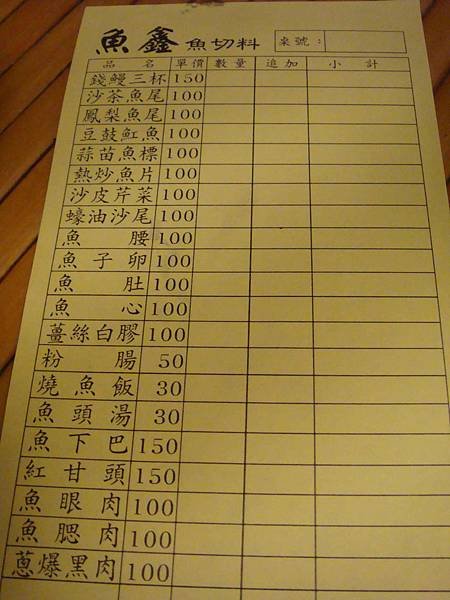 魚鑫 魚切料 桌號：
品名 單價 數量 追加 小計
錢鰻三杯 150
沙茶魚尾 100
鳳梨魚尾 100
豆鼓魟魚 100
蒜苗魚標 100
熱炒魚片 100
沙皮芹菜 100
蠔油沙尾 100
魚腰 100
魚子卵 100
魚肚 100
魚心 100
薑絲白膠 100
粉腸 50
燒魚飯 30
魚頭湯 30
魚下巴 150
紅甘頭 150
魚眼肉 100
魚腮肉 100
蔥爆黑肉 100